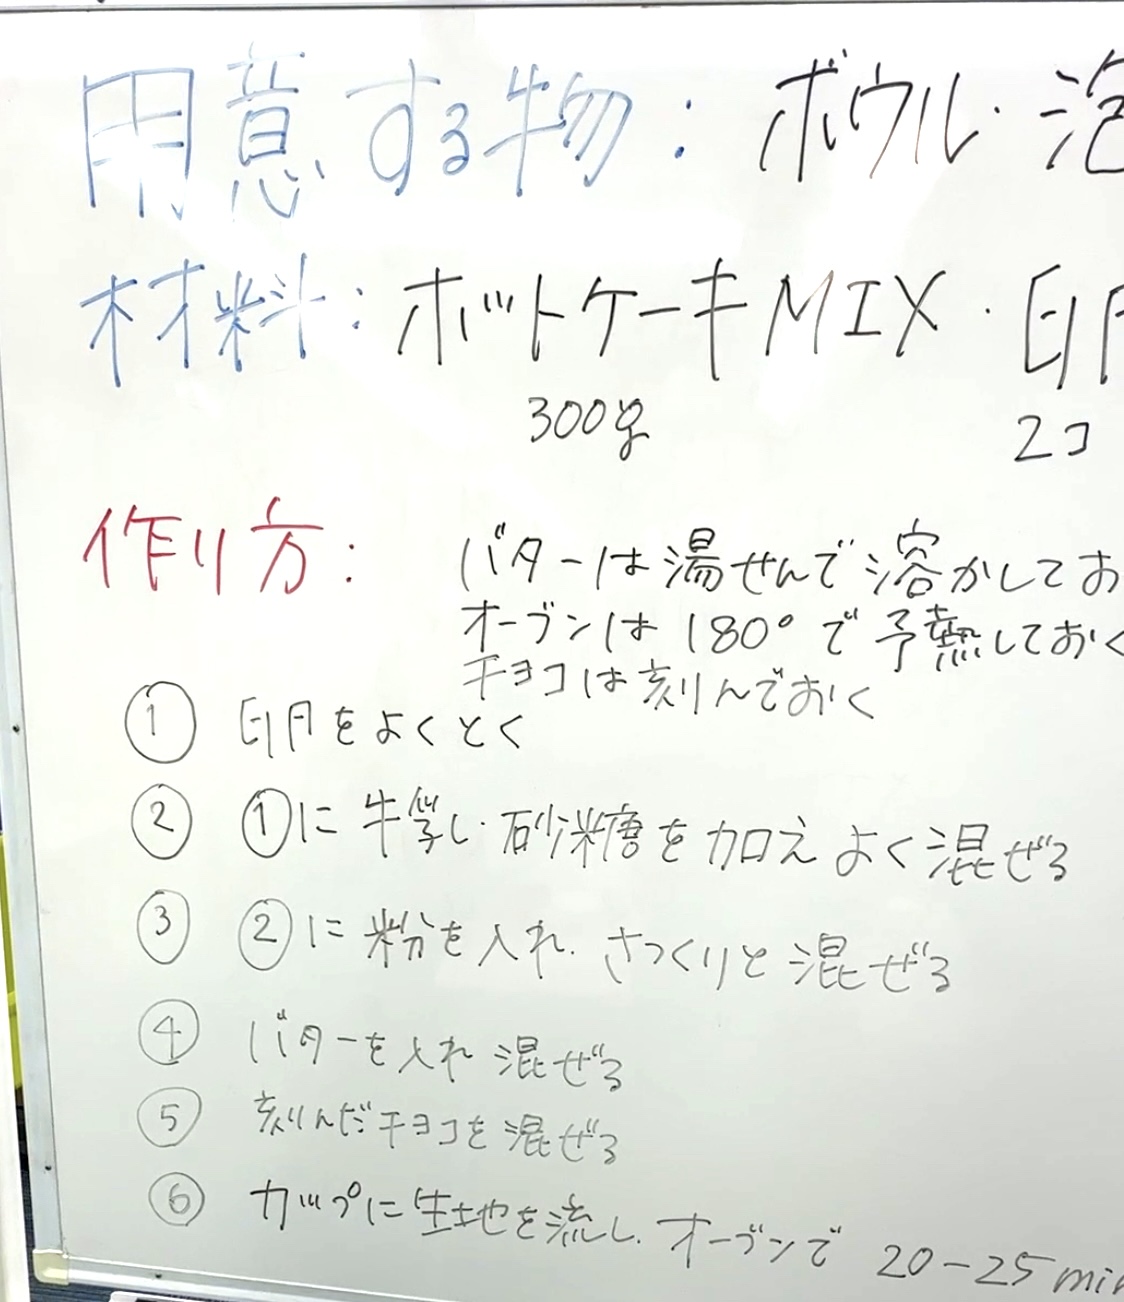 用意する物：ボウル・泡
材料：ホットケーキMIX・卵
300g 2コ
作り方：
バターは湯せんで溶かしてお
オーブンは180°で予熱しておく
チョコは刻んでおく
① 卵をよくとく
② ①に牛乳・砂糖を加えよく混ぜる
③ ②に粉を入れ、さっくりと混ぜる
④ バターを入れ混ぜる
⑤ 刻んだチョコを混ぜる
⑥ カップに生地を流し、オーブンで20-25min